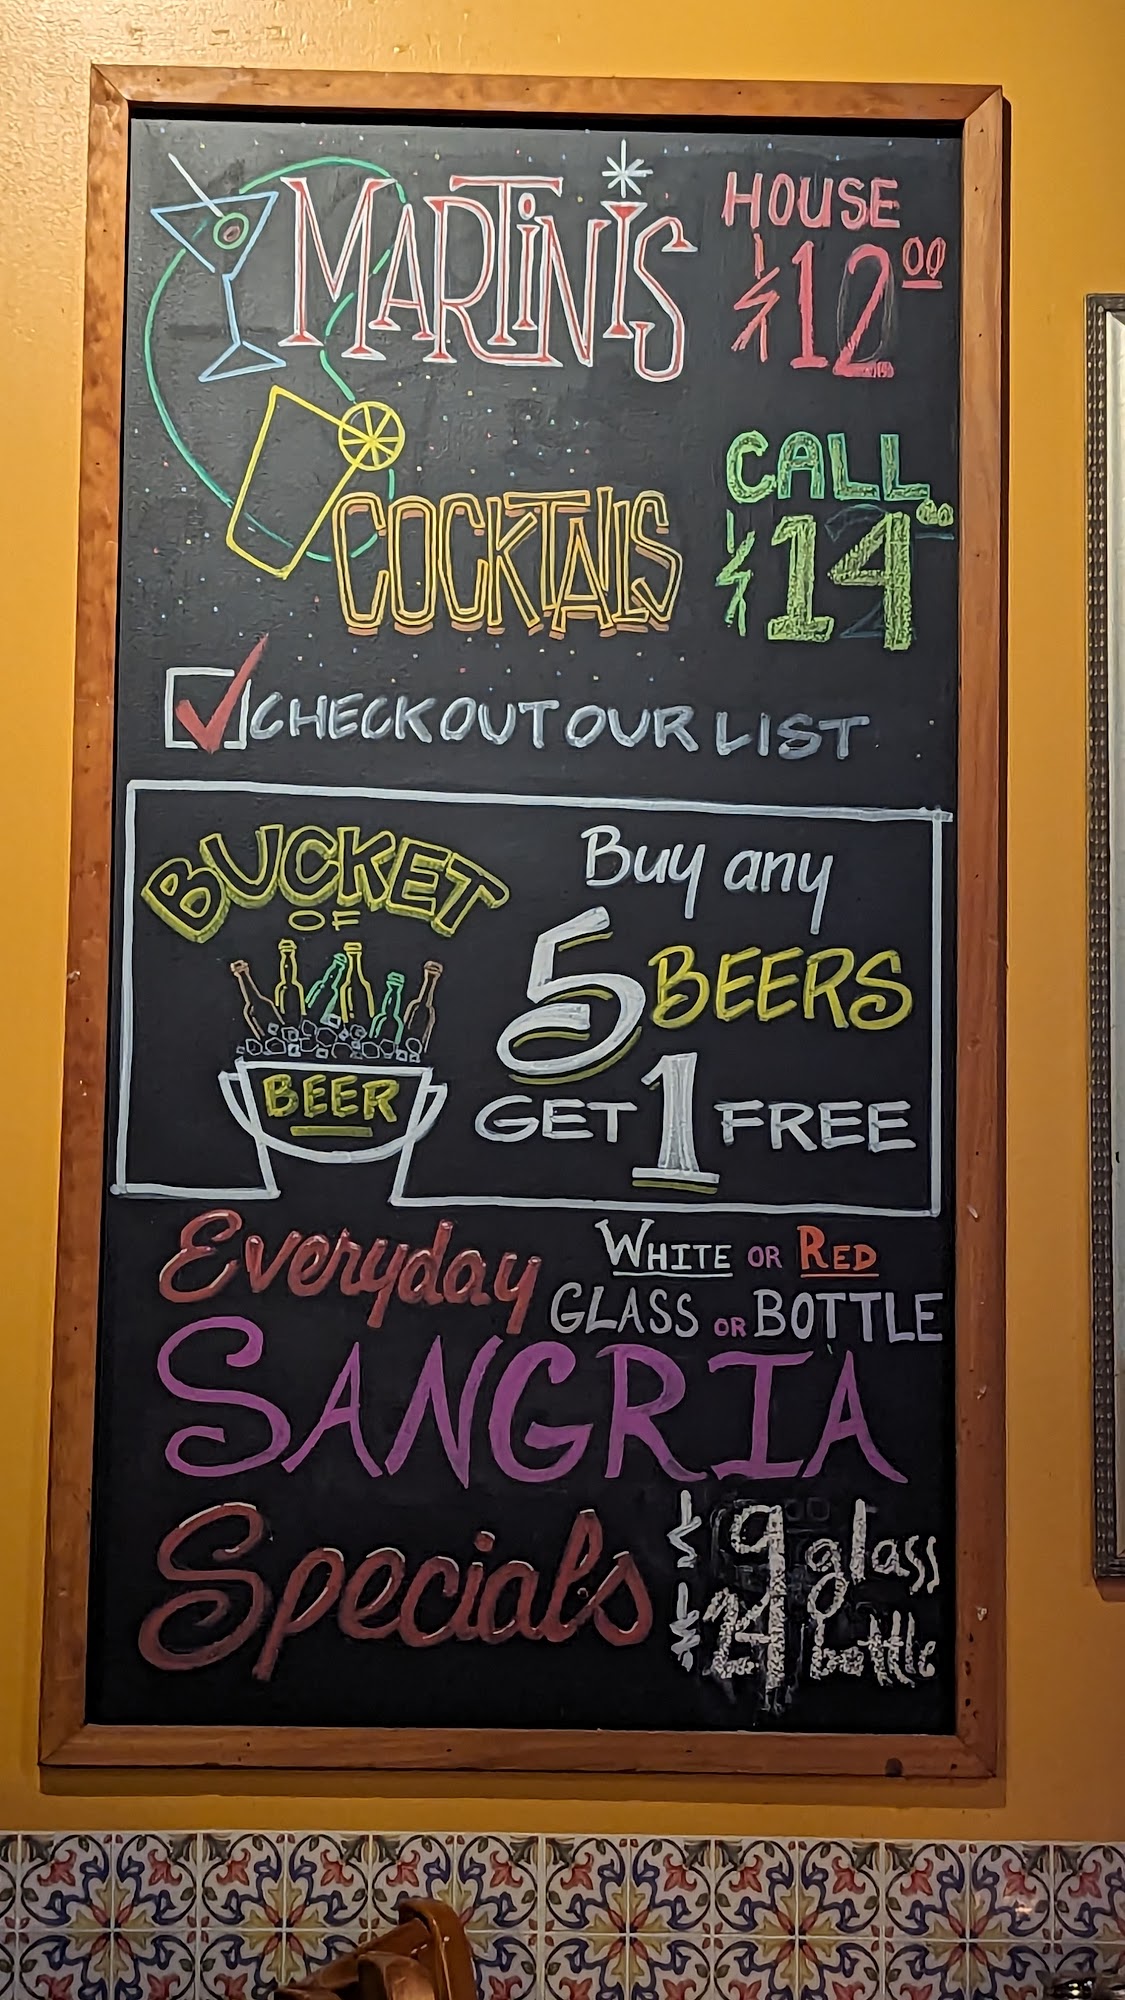 MARTINIS
HOUSE
$12.00
COCKTAILS
CALL
$14.00
CHECK OUT OUR LIST
BUCKET
OF
BEER
Buy any
5 BEERS
GET 1 FREE
Everyday
WHITE OR RED
GLASS OR BOTTLE
SANGRIA
Specials
$9 glass
$24 bottle